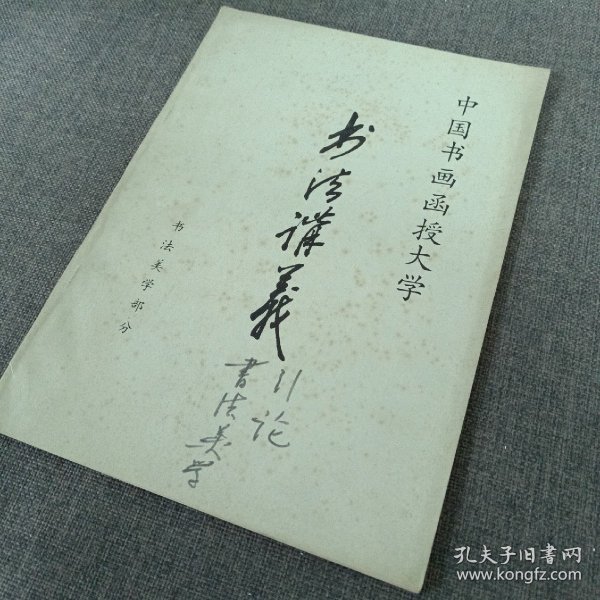 中国书画函授大学
书法讲義
引论
書法美学
书法美学部分
孔夫子旧書网
www.kongfz.com